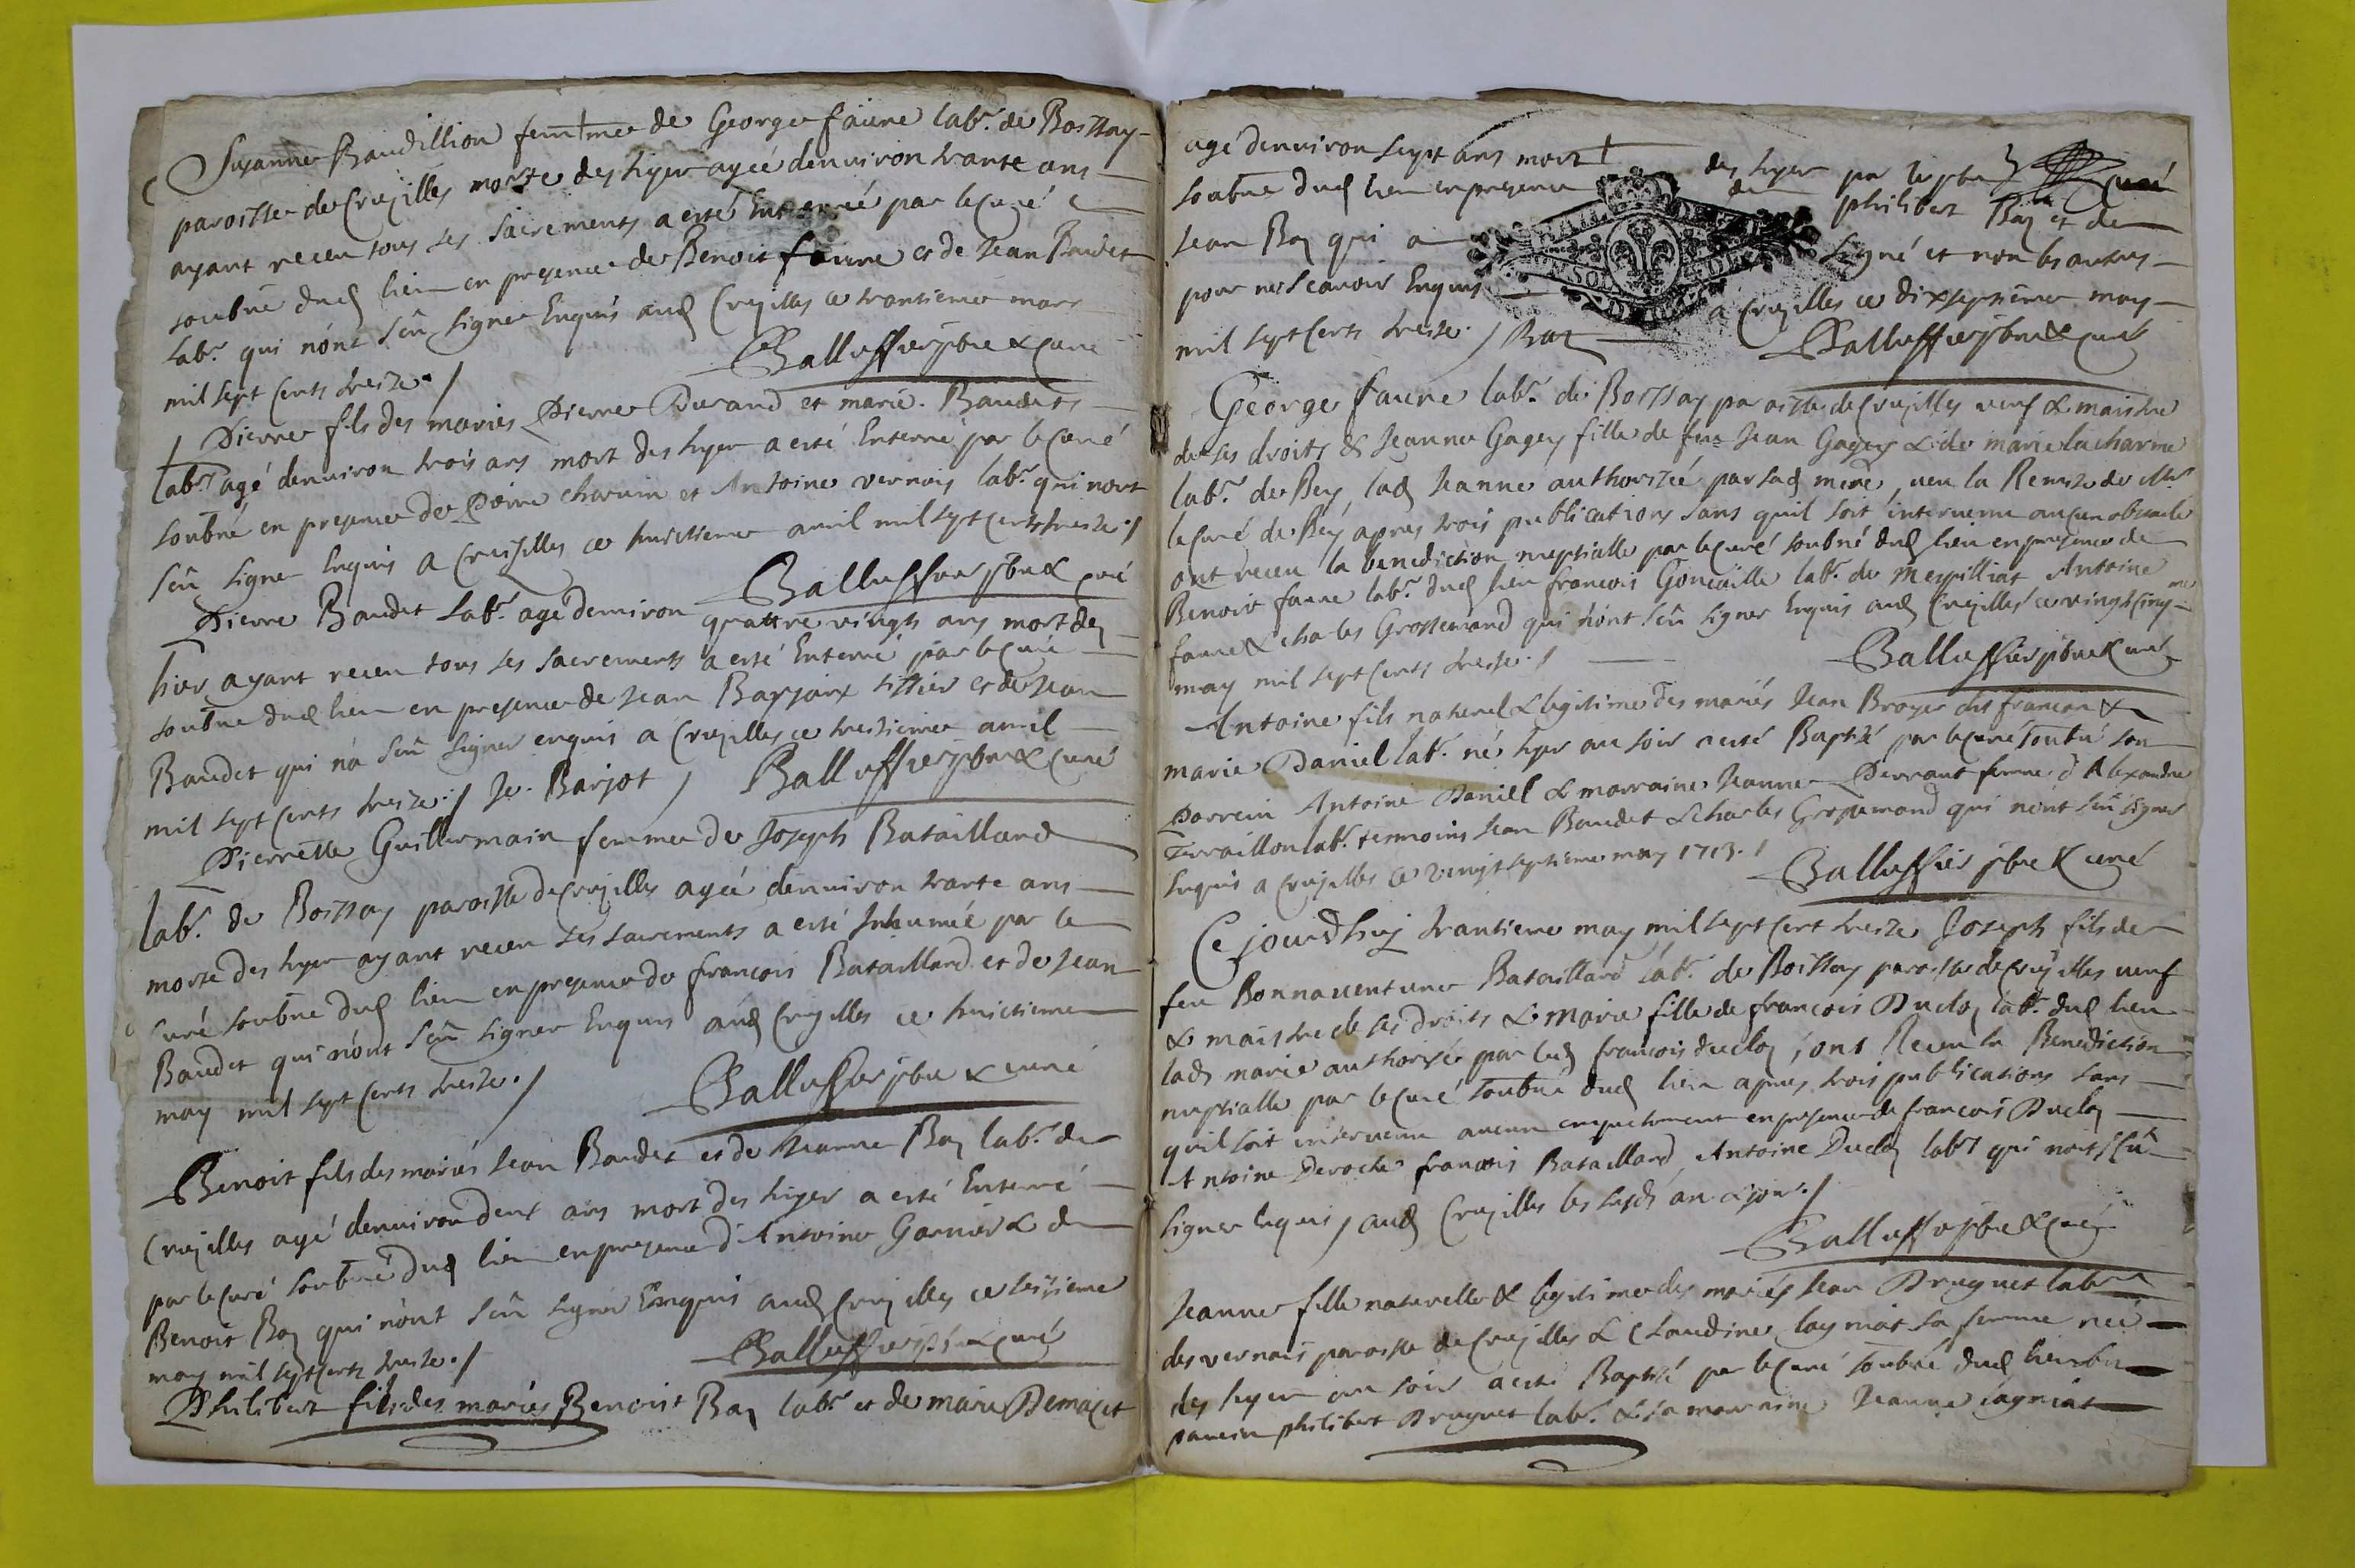 Suzanne Baudillion femme de George faure lab.r de Boissay
paroisse de Crusilles morte des hyer agée denviron trante ans
ayant receu tous ses sacrements a esté Enterré par le Curé
soubné dud lieu en presence de Benoit faure et de Jean Baudet
lab.r qui nónt sçû signer Enquis aud Crusilles ce trantieme mars
mil sept cents treize ./
Balluffier pbre & curé
Pierre fils des mariés Pierre Durand et marie Baudet
lab.rs agé denviron trois ans mort des hyer a esté Enterré par le Curé
soubné en presence de Pierre charuin et Antoine vernois lab.r qui nont
sçû signer Enquis a Crusilles ce huictieme auril mil sept cents treize ./
Balluffier pbre & curé
Pierre Baudet Lab.r agé denviron quattre vingts ans mort des
hier ayant receu tous ses sacrements a esté Enterré par le Curé
soubné dud lieu en presence de Jean Barjoux tissier et de Jean
Baudet qui ná sçû signer enquis á Crusilles ce treizieme auril
mil sept cents treize ./ Je. Barjot / Balluffier pbre & curé
Pierrette Guillermain femme de Joseph Bataillard
lab.r de Boissay paroisse de Crusilles agée denviron trante ans
morte des hyer ayant receu ses sacrements a esté Inhumée par le
curé soubné dud lieu en presence de francois Bataillard et de Jean
Baudet qui nónt sçû signer Enquis aud Crusilles ce huictieme
may mil sept cents treize ./
Balluffier pbre & curé
Benoit fils des mariés Jean Baudet et de Jeanne Bay lab.r de
Crusilles agé denviron deux ans mort des hyer a esté Enterré
par le Curé soubné dud lieu en presence d'Antoine Garnier & de
Benoit Bay qui nónt sçû signer Enquis aud Crusilles ce seizieme
may mil sept cents treize ./
Balluffier pbre & curé
Philibert fils des mariés Benoist Bay lab.r et de marie Demacet
agé denviron sept ans mort des hyer par le pbre curé
soubné dud lieu en presence de philibert Bay et de
Jean Bay qui a signé et non les autres
pour ne scavoir Enquis a Crusilles ce dixseptieme may
mil sept cents treize / Bay Balluffier pbre & curé
George faure lab.r de Boissay paroisse de Crusilles veuf & maistre
de ses droits & Jeanne Gagey fille de feu Jean Gagey & de marie lacharme
lab.r de Bey, lad Jeanne authorisée par sad mere, veu la Remise de Mr
le curé de Bey apres trois publications sans quil soit intervenu aucun obstacle
ont receu la benediction nuptialle par le Curé soubné dud lieu en presence de
Benoit faure lab.r dud lieu francois Goncaille lab.r de Mespilliat Antoine
faure & charles Grossemand qui nónt sçû signer Enquis aud Crusilles ce vingt cinq
may mil sept cents treize ./
Balluffier pbre & curé
Antoine fils naturel & legitime des mariés Jean Broyer dit francon &
marie Daniel lab.r né hyer au soir a esté Baptizé par le curé soubné son
Parrein Antoine Daniel & marraine Jeanne Perraut femme d'Alexandre
Terraillon lab.r temoins Jean Baudet & charles Grossemand qui nónt sçû signer
Enquis a Crusilles ce vingt septieme may 1713 ./
Balluffier pbre & curé
Ce jourdhuy trantieme may mil sept cent treize Joseph fils de
feu Bonnaventure Bataillard lab.r de Boissay paroisse de Crusilles veuf
& maistre de ses droits & Marie fille de francois Duclos lab.r dud lieu
lad marie authorisée par led francois duclos, ont Receu la Benediction
nuptialle par le Curé soubné dud lieu apres trois publications sans
quil soit intervenu aucun empechement en presence de francois Duclos
Antoine Deroche francois Bataillard, Antoine Duclos lab.rs qui nont sçû
signer enquis / aud Crusilles les susds an & jour ./
Balluffier pbre & curé
Jeanne fille naturelle & legitime des mariés Jean Druguet lab.r
des vernais paroisse de Crusilles & Claudine lagniat sa femme née
des hyer au soir a esté Baptisé par le Curé soubné dud lieu son
parrein philibert Druguet lab.r & sa marraine Jeanne lagniat